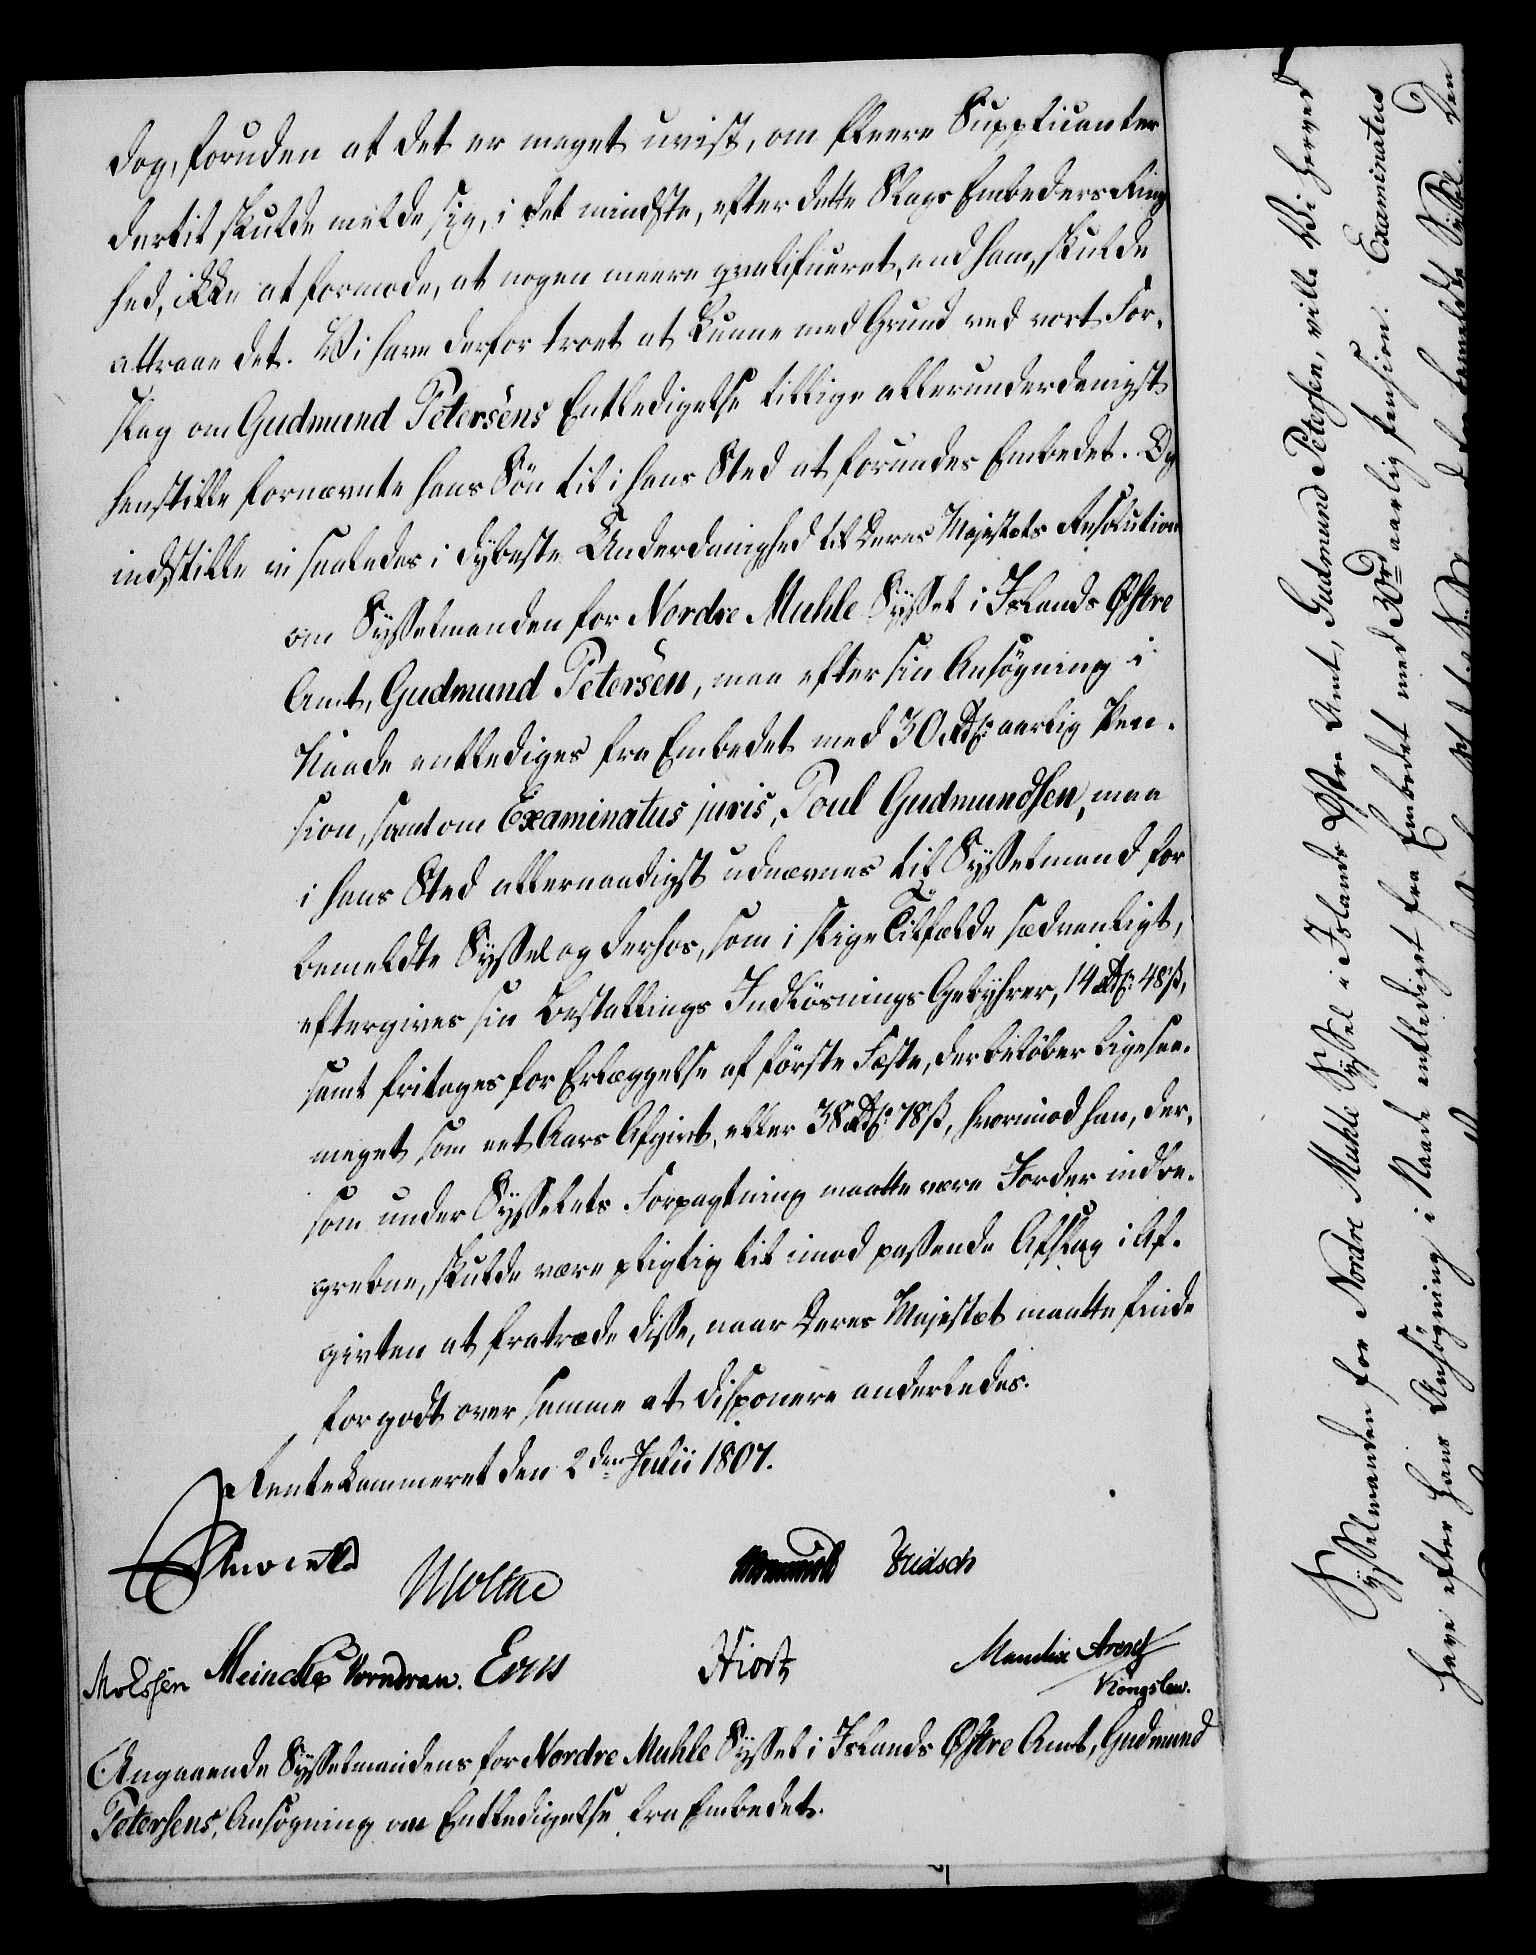 dog, foruden at det er meget uvist, om fleere Supplicanter
dertil skulde melde sig, i det mindste, efter dette Slags Embeders Ring
hed, ikke at formode, at nogen meere qvalificeret, end han, skulde
attraae det. Vi have derfor troet at kunne med Grund ved vort For-
slag om Gudmund Petersens Entledigelse tillige allerunderdanigst
henstille fornævnte hans Sön til i hans Sted at forundes Embedet. Og
indstille vi saaledes i dybeste Underdanighed til Deres Majestæts Resolution
om Sysselmanden for Nordre Muhle Syssel i Islands Østre
Amt, Gudmund Petersen, maa efter sin Ansögning i
Naade entlediges fra Embedet med 30 Rdr: aarlig Pen-
sion, samt om Examinatus juris, Poul Gudmundsen, maa
i hans Sted allernaadigst udnævnes til Sysselmand for
bemeldte Syssel og derhos, som i slige Tilfælde sædvanligt,
eftergives sin Bestallings Indlösnings Gebyhrer, 14 Rdr: 48 ß,
samt fritages for Erlæggelse af förste Fæste, der belöber ligesaa-
meget som eet Aars Afgivt, eller 38 Rdr: 78 ß, hvorimod han, der-
som under Sysselets Forpagtning maatte være Jorder indbe-
grebne, skulde være pligtig til imod passende Afslag i Af-
givten at fratræde disse, naar Deres Majestæt maatte finde
for godt over samme at disponere anderledes.
Rentekammeret den 2den Julii 1807.
Moltke
Fridsch
Meincke Vorndran. Hiort
Kongslew.
Angaaende Sysselmandens for Nordre Muhle Syssel i Islands Østre Amt, Gudmund
Petersens, Ansögning om Entledigelse fra Embedet.
Sysselmanden for Nordre Muhle Syssel i Islands Østre Amt, Gudmund Petersen, ville Vi herved
have efter hans Ansögning i Naade entlediget fra Embedet med 30 rd aarlig Pension. Examinatus